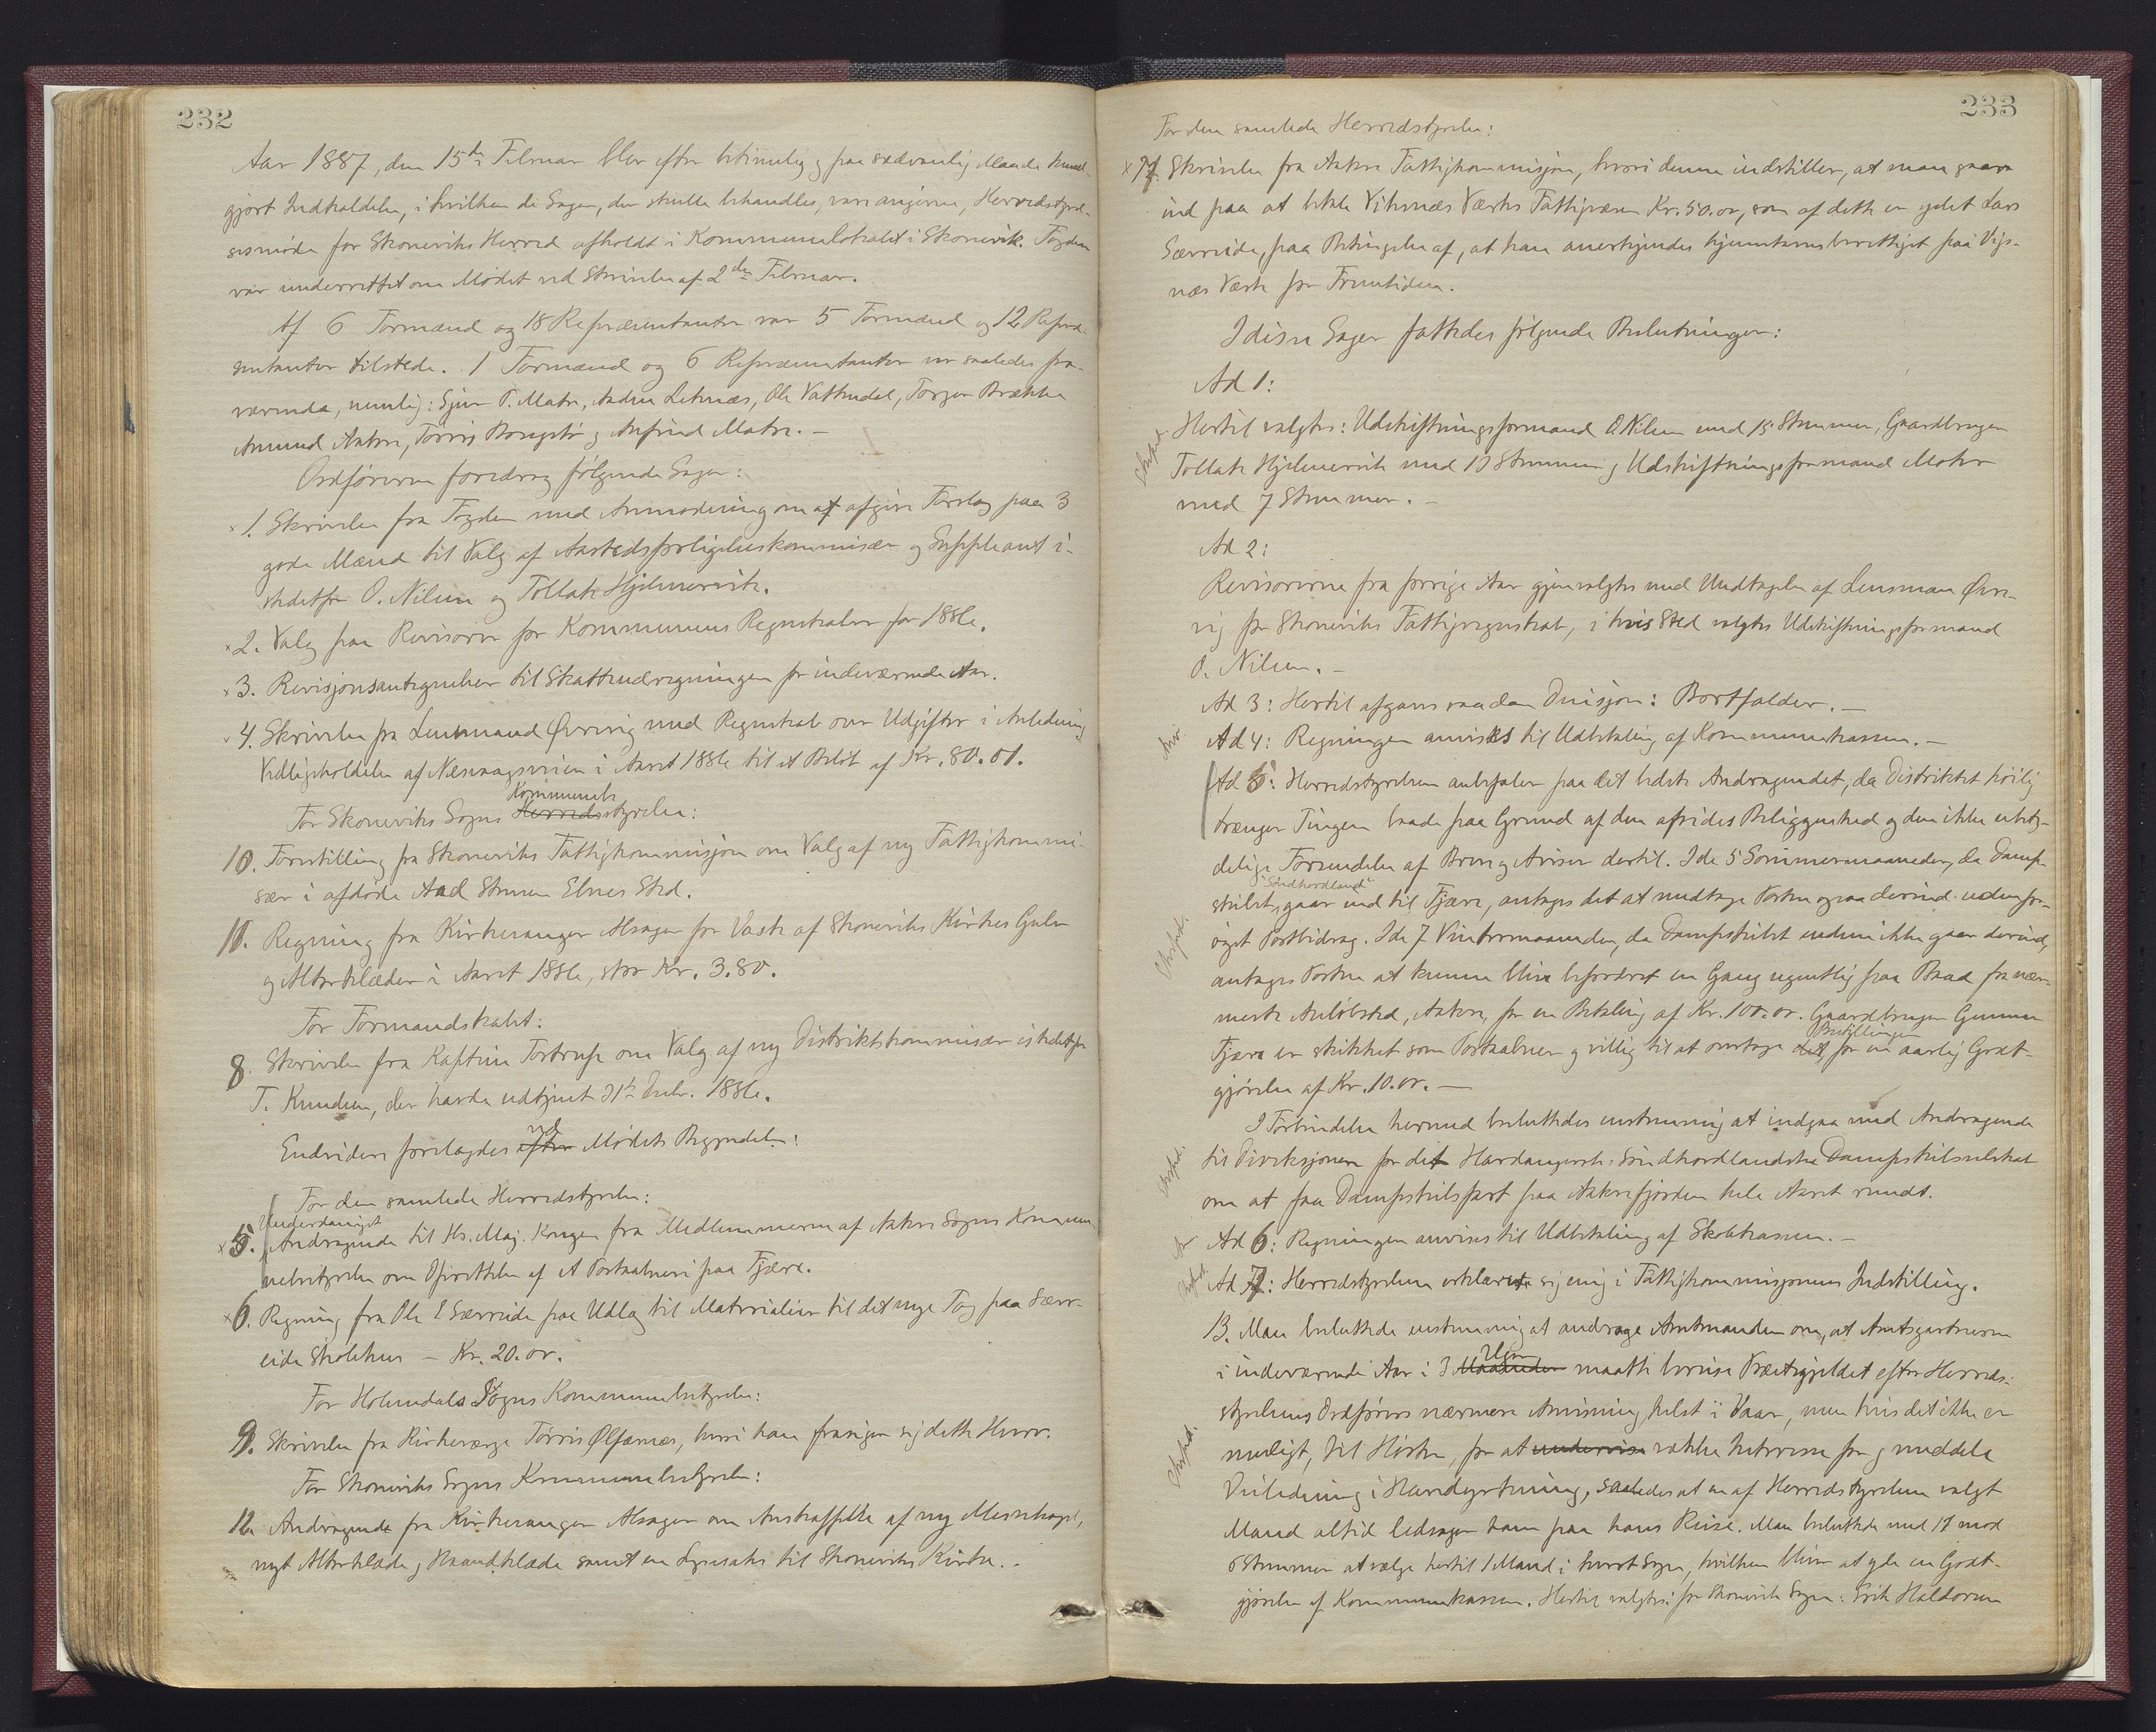 232
Aar 1887, den 15de Februar blev efter betimelig og paa sædvanlig Maade kund-
gjort Indkaldelse, i hvilken de Sager, der skulde behandles, vare angivne, Herredsstyrel-
sesmøde for Skoneviks Herred afholdt i Kommunelokalet i Skonevik. Fogden
var underrettet om Mødet ved Skrivelse af 2den Februar.
Af 6 Formænd og 18 Repræsentanter var 5 Formænd og 12 Repræ-
sentanter tilstede. 1 Formand og 6 Repræsentanter var saaledes fra-
værende, nemlig: Sjur P. Matre, Anders Leknæs, Ole Vattedal, Torger Brække
Amund Aakre, Tørris Bongstø og Anfind Matre. —
Ordføreren foredrog følgende Sager:
x 1. Skrivelse fra Fogden med Anmodning om at afgive Forslag paa 3
gode Mænd til Valg af Aastedsforligelseskommisær og Suppleant i-
stedetfor O. Nilsen og Tollak Hjelmervik.
x 2. Valg paa Revisorer for Kommunens Regnskaber for 1886.
x 3. Revisjonsantegnelser til Skatteudregningen for indeværende Aar.
4. Skrivelse fra Lensmand Øvrevig med Regnskab over Udgifter i Anledning
Vedligeholdelse af Næsvaagsveien i Aaret 1886 til et Beløb af Kr. 80.01.
Kommune
For Skoneviks Sogns Herredsstyrelse:
10. Forestilling fra Skoneviks Fattigkommisjon om Valg af ny Fattigkommi-
sær i afdøde Aad Steinsen Ebnes Sted.
11. Regning fra Kirkesanger Alsager for Vask af Skoneviks Kirkes Gulv
og Alterklæder i Aaret 1886, stor Kr. 3.80.
For Formandskabet:
8. Skrivelse fra Kaptein Tostrup om Valg af ny Distriktskommisær istedetfor
T. Knudsen, der havde udtjent 31te Decbr. 1886.
ved
Endvidere forelagdes efter Mødets Begyndelse:
For den samlede Herredsstyrelse:
Underdanigst
x 5. Andragende til Hs. Maj. Kongen fra Medlemmerne af Aakre Sogns Kommu-
nebestyrelse om Oprettelse af et Postaabneri paa Fjære.
x 6. Regning fra Ole E Særreide paa Udlæg til Materialier til det nye Tag paa Særr-
eide Skolehus — Kr. 20.00.
For Holmedals Sogns Kommunebestyrelse:
9. Skrivelse fra Kirkeværge Tørris Ølfærnes, hvori han frasiger sig dette Hverv.
For Skoneviks Sogns Kommunebestyrelse:
12. Andragende fra Kirkesanger Alsager om Anskaffelse af ny Messehagel,
nyt Alterklæde og Haandklæde samt en Lysesaks til Skoneviks Kirke. -
233
For den samlede Herredsstyrelse:
x 7. Skrivelse fra Aakre Fattigkommisjon, hvori denne indstiller, at man gaar
ind paa at betale Viksnæs Værks Fattigvæsen Kr. 50.00, som af dette er ydet Lars
Særreide, paa Betingelse af, at han anerkjendes hjemstavnsberettiget paa Vigs-
næs Værk for Fremtiden.
I disse Sager fattedes følgende Beslutninger:
Ad 1:
Hertil valgtes: Udskiftningsformand O. Nilsen med 15 Stemmer, Gaardbruger
Tollak Hjelmervik med 13 Stemmer og Udskiftningsformand Matre
med 7 Stemmer. —
Ad 2:
Revisorerne fra forrige Aar gjenvalgtes med Undtagelse af Lensmann Øvre-
vig for Skoneviks Fattigregnskab, i hvis Sted valgtes Udskiftningsformand
O. Nilsen. —
Ad 3: Hertil afgaves saadan Decisjon: Bortfalder. —
Ad 4: Regningen anvises til Udbetaling af Kommunekassen. —
Ad 5: Herredsstyrelsen anbefaler paa det bedste Andragendet, da Distriktet høilig
trænger Tingen baade paa Grund af den afsides Beliggenhed og den ikke ubety-
delige Forsendelse af Breve og Aviser dertil. I de 5 Sommermaaneder, da Damp-
"Søndhordland"
skibet gaar ind til Fjære, antages det at medtage Posten ogsaa derind uden for-
øget Postbidrag. I de 7 Vintermaaneder, da Dampskibet endnu ikke gaar derind,
antages Posten at kunne blive befordret en Gang ugentlig paa Baad fra nær-
meste Anløbssted, Aakre, for en Betaling af Kr. 100.00. Gaardbruger Gunnar
Bestillingen
Fjære er skikket som Postaabner og villig til at overtage det for en aarlig Godt-
gjørelse af Kr. 10.00. —
I Forbindelse hermed besluttedes enstemmig at indgaa med Andragende
til Direksjonen for det Hardangerske-Søndhordlandske Dampskibsselskab
om at faa Dampskibsfart paa Aakrefjorden hele Aaret rundt.
Ad 6: Regningen anvises til Udbetaling af Skolekassen. —
Ad 7: Herredsstyrelsen erklærte sig enig i Fattigkommisjonens Indstilling.
13. Man besluttede enstemmig at andrage Amtmanden om, at Amtsgartneren
Uger
i indeværende Aar i 3 Maaneder maatte bereise Præstegjeldet efter Herreds-
styrelsens Ordførers nærmere Anvisning helst i Vaar, men hvis det ikke er
muligt, til Høsten, for at undervise vække Interesse for og meddele
Veiledning i Havedyrkning, saaledes at en af Herredsstyrelsen valgt
Mand altid ledsager ham paa hans Reise. Man besluttede med 11 mod
6 Stemmer at vælge hertil 1 Mand i hvert Sogn, hvilken bliver at yde en Godt-
gjørelse af Kommunekassen. Hertil valgtes: for Skonevik Sogn: Erik Haldorsen